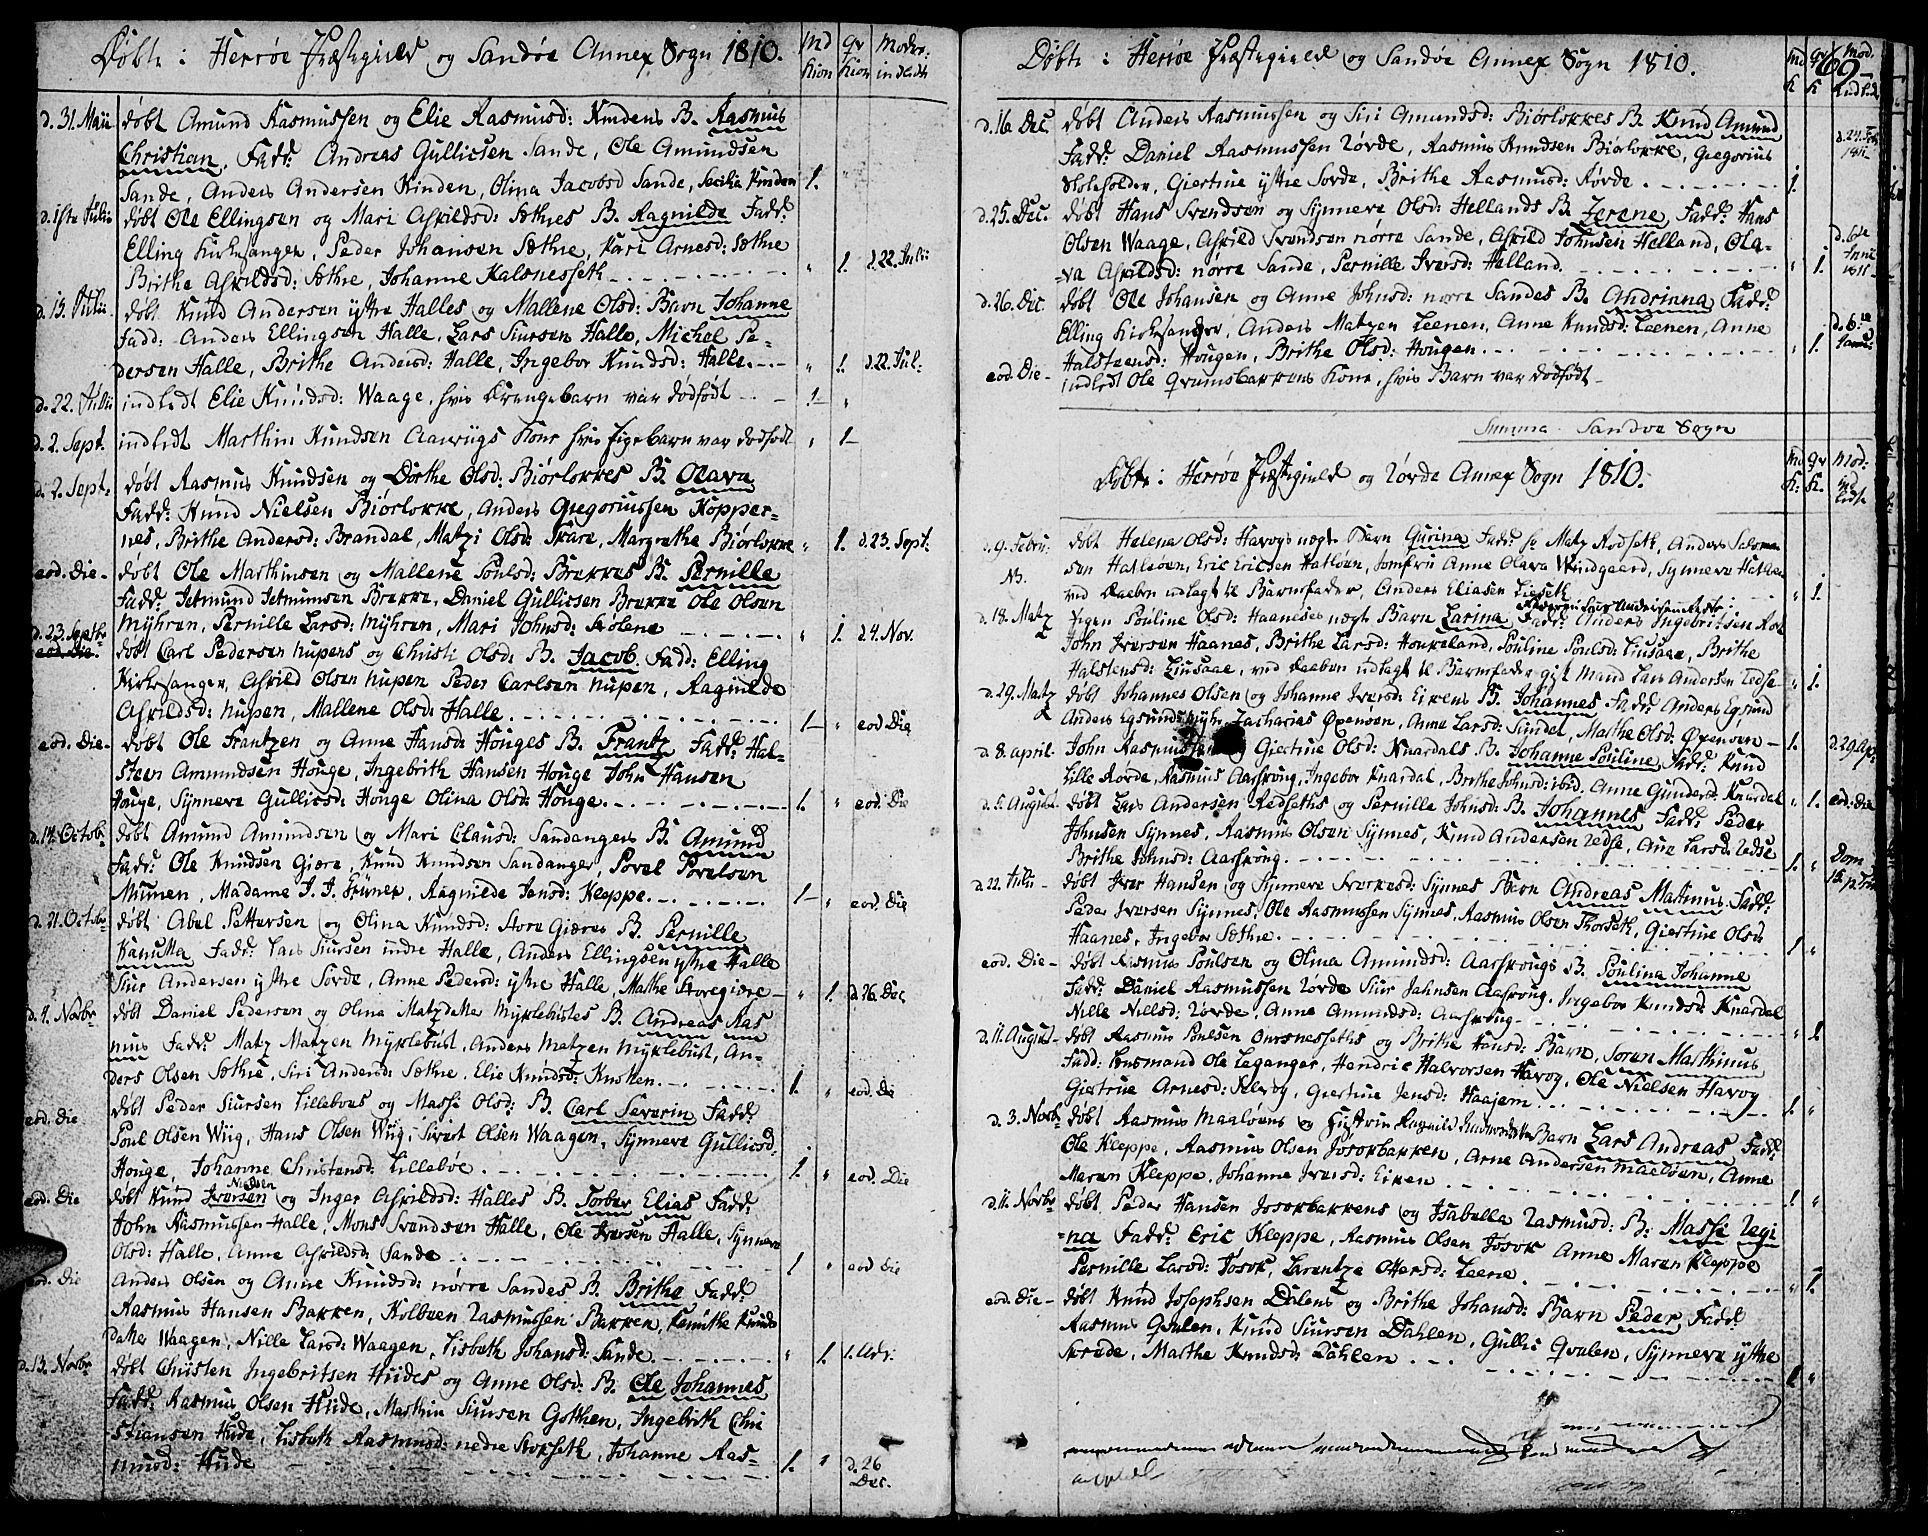 Døbte i Herrøe Præstegield og Sandøe Annex Sogn 1810.
Md Kion
Qv Kion
Modre: indledte
d. 31. Maii døbt Amund Rasmussen og Elie Rasmusd: Kindens B. Rasmus
Christian, Fadd: Andreas Gullicsen Sande, Ole Amundsen
Sande, Anders Andersen Kinden, Olina Jacobsd Sande, Secilia Kinden 1.
d. 1ste Julii døbt Ole Ellingsen og Mari Askildsd: Sæthres B. Ragnilde Fadd:
Elling Kirkesanger, Peder Johansen Sæthre, Kari Arnesd: Sæthre
Brithe Askildsd: Sæthre, Johanne Kalsnesseth " 1. d. 22. Julii
d. 15. Julii døbt Knud Andersen ystre Halles og Mallene Olsd: Barn Johanne
Fadd: Anders Ellingsen Halle, Lars Siursen Halle, Michel Pe-
dersen Halle, Brithe Andersd: Halle, Ingebor Knudsd: Halle. " 1. d. 22. Jul:
d. 22. Julii indledt Elie Knudsd: Waage, hvis Drengebarn var dødfødt 1. "
d. 2. Sept. indledt Marthin Knudsen Aarvigs Kone hvis Pigebarn var dødfødt " 1
d. 2. Sept: døbt Rasmus Knudsen og Dorthe Olsd: Biørlokkes B. Olava
Fadd: Knud Nielsen Biørlokke, Anders Gregoriussen Kopper-
nes, Brithe Andersd: Brandal, Matzi Olsd: Skare, Margrethe Biørlokke " 1. d. 23. Sept:
eod. Die døbt Ole Marthinsen og Mallene Poulsd: Brekkes B. Pernille
Fadd: Jetmund Jetmunsen Brekke, Daniel Gullicsen Brekke Ole Olsen
Myhren, Pernille Larsd: Myhren, Mari Johnsd: Stølene " 1. 24. Nov.
d. 23. Septbr døbt Carl Pedersen Nupens og Christi Olsd: B. Jacob. Fadd: Elling
eod. Die
Kirkesanger, Askild Olsen Nupen Peder Carlsen Nupen, Ragnilde
Askildsd: Nupen, Mallene Olsd: Halle 1 " eod Die
eod. Die døbt Ole Frantzen og Anne Hansd: Houges B. Frantz Fadd: Hal-
steen Amundsen Houge, Ingebrith Hansen Houge John Hansen
Houge, Synneve Gullicsd: Houge Olina Olsd: Houge. 1. " eod. Die
d. 14. Octob: døbt Amund Amundsen og Mari Clausd: Sandangers B. Amund
Fadd: Ole Knudsen Giære, Knud Knudsen Sandanger, Povel Povelsen
Muunen, Madame J. J. Grüner, Ragnilde Jensd: Kleppe. 1 " eod. Die
d. 21. Octob: døbt Abel Pettersen og Olina Knudsd: Store Giæres B. Pernille
Kanutta Fadd: Lars Siursen indre Halle, Anders Ellingsen ystre Halle
Siur Andersen ystre Sørde, Anne Pedersd: ystre Halle, Mathe Storegiære " 1. d 26. Dec
d. 4. Novbr døbt Daniel Pedersen og Olina Matzdatter Myklebustes B. Andreas Ras
mus Fadd: Matz Matzen Myklebust, Anders Matzen Myklebust, An-
ders Olsen Sæthre, Siri Andersd: Sæthre, Elie Knudsd: Knotten. 1. " eod. Die
eod. Die døbt Peder Siursen Lillebøes og Massi Olsd: B. Carl Severin Fadd:
Poul Olsen Wiig, Hans Olsen Wiig, Sivert Olsen Waagen, Synneve Gullicsd:
Houge, Johanne Christensd: Lillebøe 1. " eod. Die
eod. Die døbt Knud Iversen Nielsen og Inger Askildsd: Halles B. Torber Elias Fadd:
John Rasmussen Halle, Mons Svendsen Halle, Ole Iversen Halle, Synneve
Olsd: Halle, Anne Askildsd: Sande 1 " eod Die
eod. Die Anders Olsen og Anne Knudsd: nørre Sandes B. Brithe Fadd:
Rasmus Hansen Bakken, Kolbeen Rasmussen Bakken, Kanutke Knuds
datter Waagen, Nille Larsd: Waagen, Lisbeth Johansd: Sande. " 1. 1. Adv:
d. 13. Novbr døbt Christen Ingebritsen Hiides og Anne Olsd: B. Ole Johannes
Fadd: Rasmus Olsen Hiide, Marthin Siursen Gotthen, Ingebrith Chri
stiansen Hide, Lisbeth Rasmusd: nedre Storseth, Johanne Ras-
musd: Hide 1. " d. 26 Dec.
Døbte i Herrøe Præstegield og Sandøe Annex Sogn 1810.
Md K
Qv K
Mod. indled.
69
d. 16. Dec døbt Anders Rasmussen og Siri Amundsd: Biørlokkes B. Knud Amund
Fadd: Daniel Rasmussen Rørde, Rasmus Knudsen Biørlokke, Gregorius
Skoleholder, Giertine ystre Sørde, Brithe Rasmusd: Rørde 1. d. 24. Feb 1811
d. 25. Dec. døbt Hans Svendsen og Synneve Olsd: Hellands B Zerene, Fadd: Hans
Olsen Waage, Askild Svendsen nørre Sande, Askild Johnsen Helland, Ola-
va Askildsd: nørre Sande, Pernille Iversd: Helland. " 1 d. 6te 1811
d. 26. Dec. døbt Ole Johansen og Anne Johnsd: nørre Sandes B. Andrinna Fadd:
Elling Kirkesanger, Anders Matzen Leenen, Anne Knudsd: Leenen, Anne
Halsteensd: Hougen, Brithe Olsd: Hougen. " 1. d. 6te Janu:
eod. Die indledt Ole Grumsbakkens Kone, hvis Barn var dødfødt
Summa Sandøe Sogn
Døbte i Herrøe Præstegield og Rørde Annex Sogn 1810.
Md K:
Qv K.
Mod: ind ledt.
d. 9. Febru: døbt Helena Olsd: Havogs uægte Barn Gurina Fadd: Sr Matz Rodseth, Anders Salomon
NB. sen Hatløen, Eric Ericsen Hatløen, Jomfru Anne Olava Windgaard, Synneve Hatløen
ved Daaben udlagt til Barnefader, Anders Eliasen Lieseth " 1.
d. 18. Matz Pigen Pouline Olsd: Haanæses uægte Barn Larina Fadd: Anders Ingebritsen
John Iversen Haanes, Brithe Larsd: Houkeland, Pouline Poulsd: Liusaae, Brithe
Halstensd: Liusaae, ved Daaben udlagt til Barnefader gift Mand Lars Andersen Redse " 1.
d. 29. Matz døbt Johannes Olsen og Johanne Iversd: Eikens B. Johannes Fadd: Anders Egsund
Anders Egsundsmyhr, Zacharias Øxensen, Anne Larsd: Sundet, Mathe Olsd: Øxensen 1. d. 29 Apr:
d. 8. april. John Rasmussen og Giertine Olsd: Knardals B. Johanne Pouline, Fadd: Knud
Lille Rørde, Rasmus Aarskoug, Ingebor Knardal, Brithe Johnsd: ibid, Anne Gundersd: Knardal " 1. eod: Die
d. 5. August døbt Lars Andersen Redseths og Pernille Johnsd: B. Johannes Fadd: Peder
Johnsen Synnes, Rasmus Olsen Synnes, Knud Andersen Redse, Ane Larsd: Redse
Brithe Johnsd: Aarskoug 1. " Dom 15. p. Trin
d. 22. Julii døbt Iver Hansen og Synneve Sverkesd: Synnes Barn Andreas Matinus Fadd:
Peder Iversen Synnes, Ole Rasmussen Synnes, Rasmus Olsen Thorseth, Giertine Olsd:
Haanes, Ingebor Sæthre 1. "
eod. Die døbt Rasmus Poulsen og Olina Amundsd: Aarskougs B. Poulina Johanne
Fadd: Daniel Rasmussen Rørde Siur Jahnsen Aarskoug, Ingebor Knudsd: Knardal
Nille Nillsd: Rørde, Anne Amundsd: Aarskoug " 1
d. 11. August døbt Rasmus Poulsen Omsnesseths og Brithe Hansd: Barn, Soren Marthinus
Fadd: Lensmand Ole Leganger, Hendric Halvorsen Havog, Ole Nielsen Havog
Giertrue Arnesd: Selvog, Giertine Jensd: Haajem 1. "
d. 3. Novb. døbt Rasmus Maaløens og Hustrue Ragnild Barn Lars Andreas Fadd:
Ole Kleppe, Rasmus Olsen Jøsokbakken, Arne Andersen Maeløen, Anne
Maren Kleppe, Johanne Iversd: Eiken 1 "
d. 11. Novbr døbt Peder Hansen Jøsokbakkens og Isabella Rasmusd: B: Massi Regi
na Fadd: Eric Kleppe, Rasmus Olsen Jøsok Anne Maren Kleppe
Pernille Larsd: Jøsok, Larentze Ottersd: Leene " 1.
eod. Die døbt Knud Josephsen Dalens og Brithe Johansd: Barn Peder Fadd:
Rasmus Qvalen, Knud Siursen Dahlen, Gullic Qvalen, Synneve ystre
Skrede, Marthe Knudsd: Dahlen 1 "